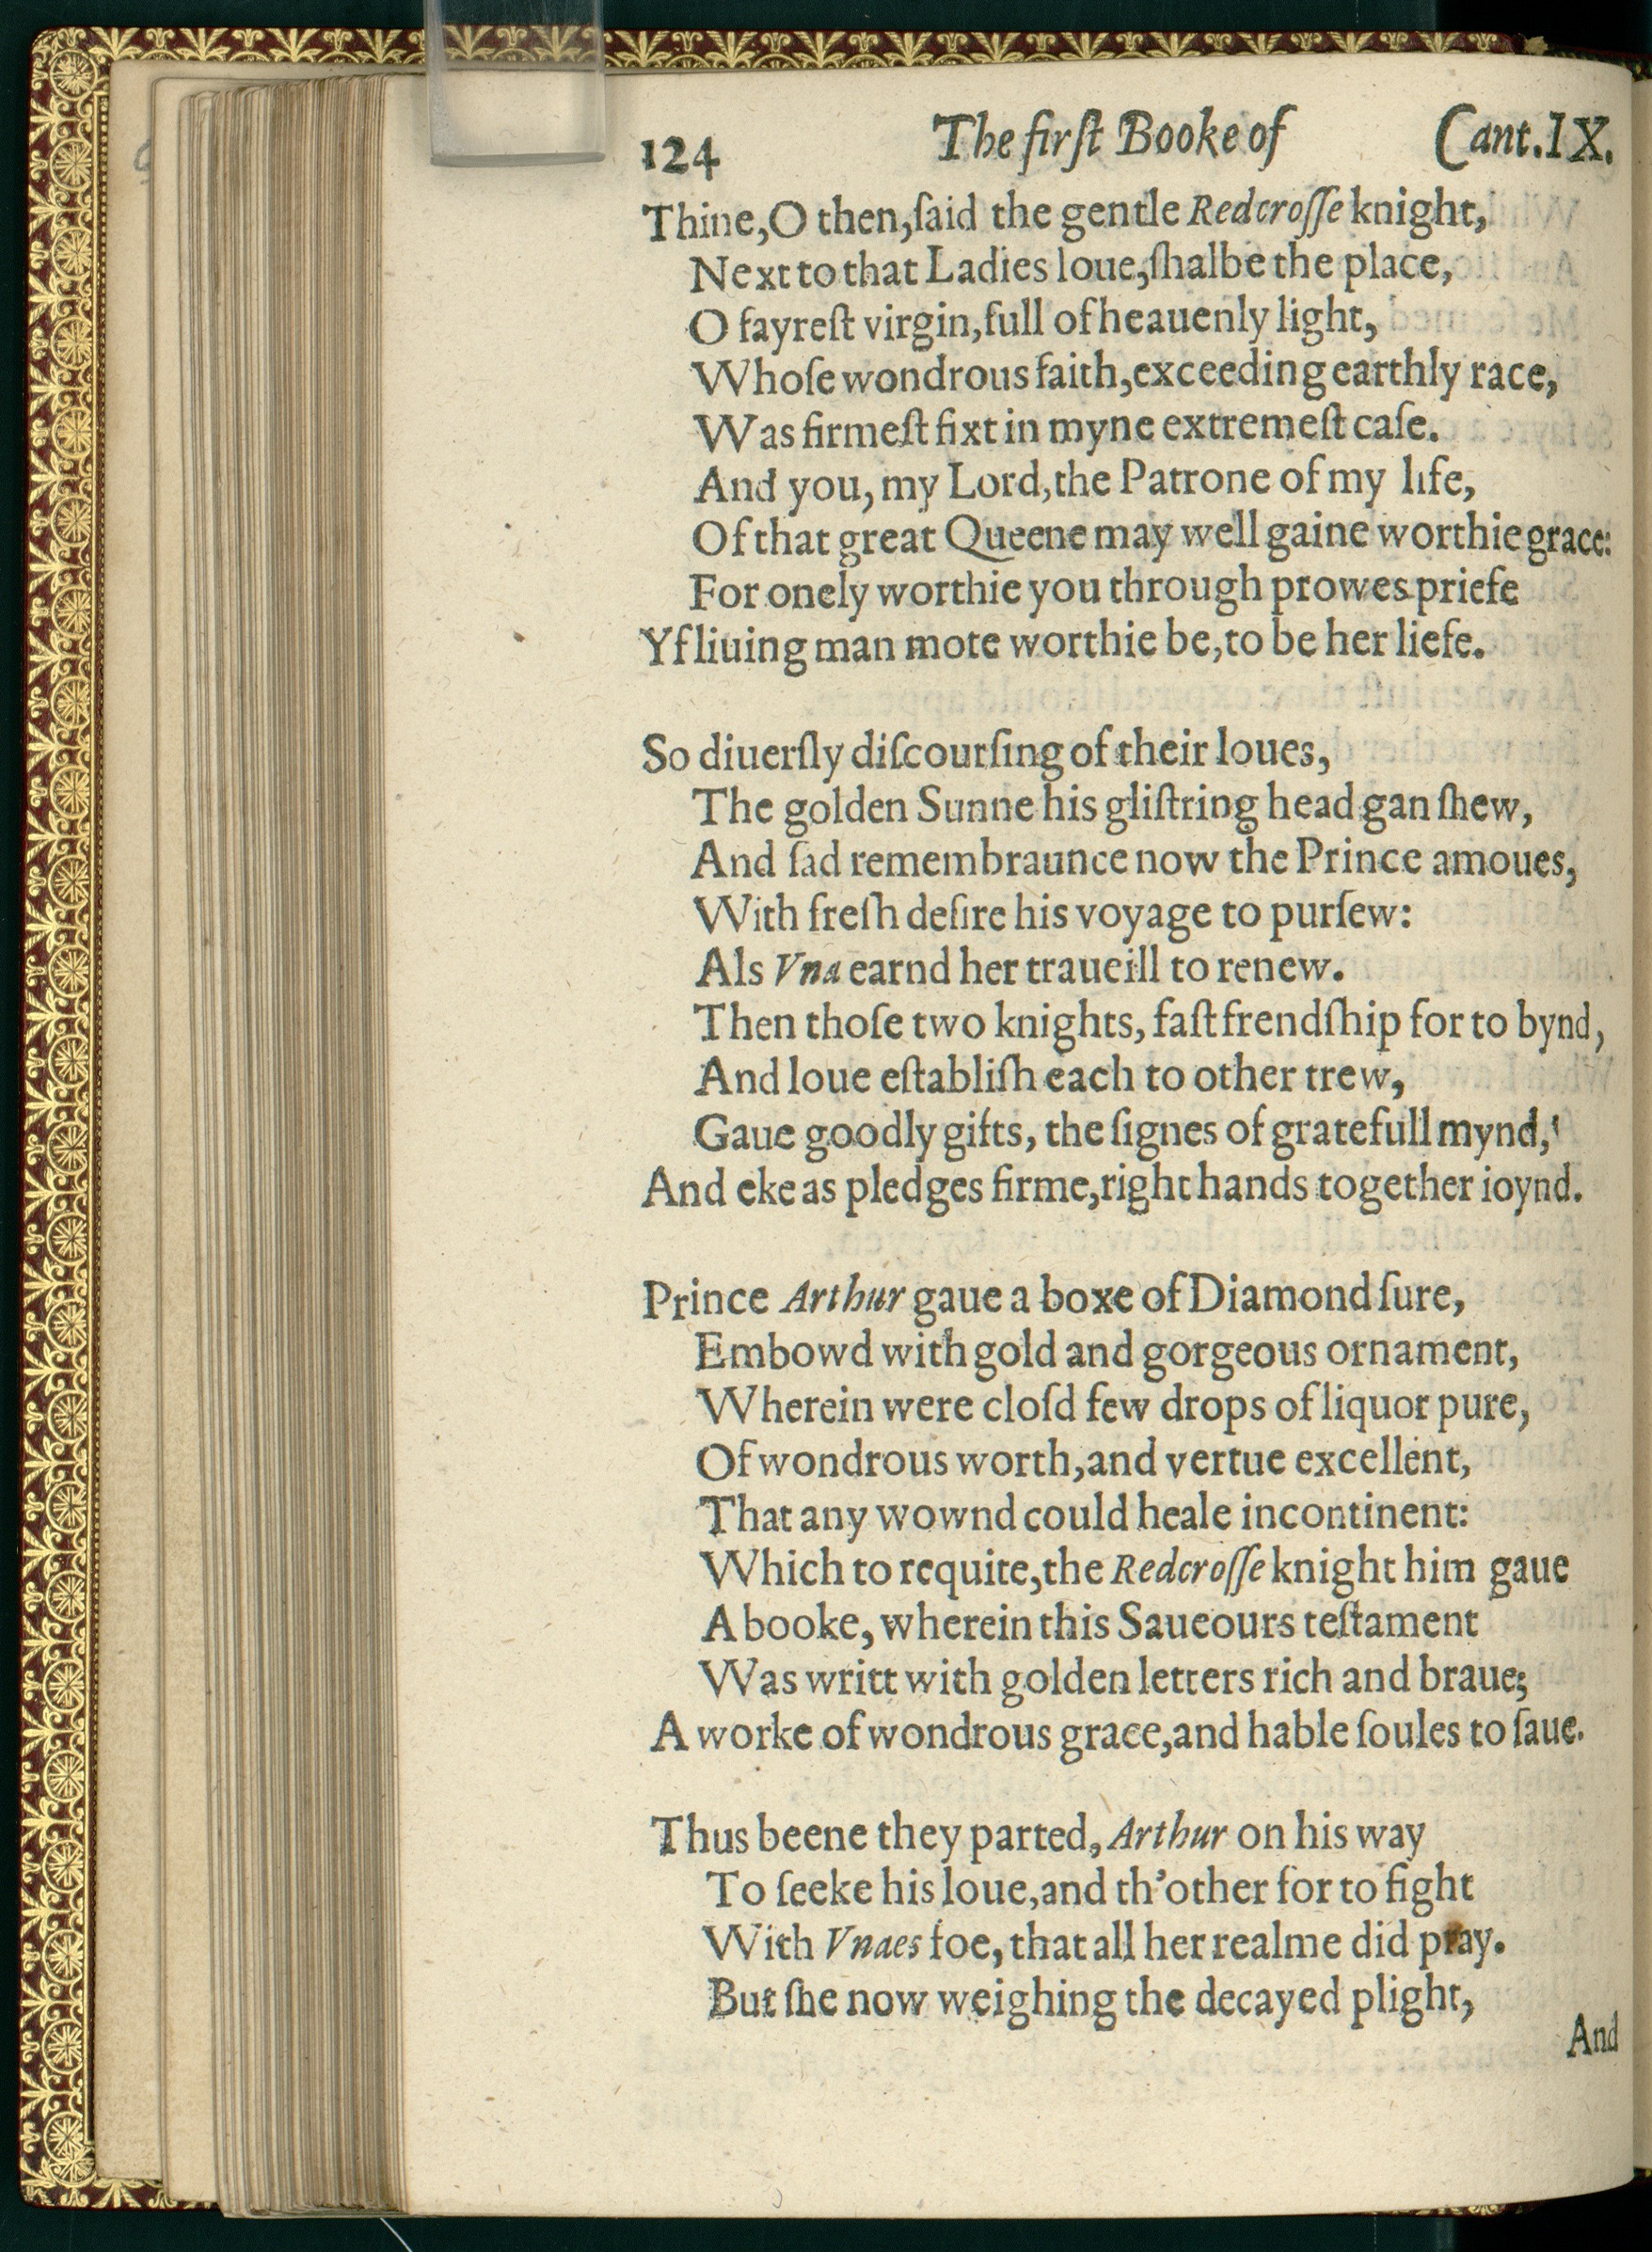 124 The firſt Booke of Cant.IX.
Thine, O then, ſaid the gentle Redcroſſe knight,
Next to that Ladies loue, ſhalbe the place,
O fayreſt virgin, full of heauenly light,
Whoſe wondrous faith, exceeding earthly race,
Was firmeſt fixt in myne extremeſt caſe.
And you, my Lord, the Patrone of my life,
Of that great Queene may well gaine worthie grace:
For onely worthie you through prowes priefe
Yf liuing man mote worthie be, to be her liefe.
So diuerſly diſcourſing of their loues,
The golden Sunne his gliſtring head gan ſhew,
And ſad remembraunce now the Prince amoues,
With freſh deſire his voyage to purſew:
Als Vna earnd her traueill to renew.
Then thoſe two knights, faſt frendſhip for to bynd,
And loue eſtabliſh each to other trew,
Gaue goodly gifts, the ſignes of gratefull mynd,
And eke as pledges firme, right hands together ioynd.
Prince Arthur gaue a boxe of Diamond ſure,
Embowd with gold and gorgeous ornament,
Wherein were cloſd few drops of liquor pure,
Of wondrous worth, and vertue excellent,
That any wownd could heale incontinent:
Which to requite, the Redcroſſe knight him gaue
A booke, wherein this Saueours teſtament
Was writt with golden letters rich and braue;
A worke of wondrous grace, and hable ſoules to ſaue.
Thus beene they parted, Arthur on his way
To ſeeke his loue, and th'other for to fight
With Vnaes foe, that all her realme did pray.
But ſhe now weighing the decayed plight,
And